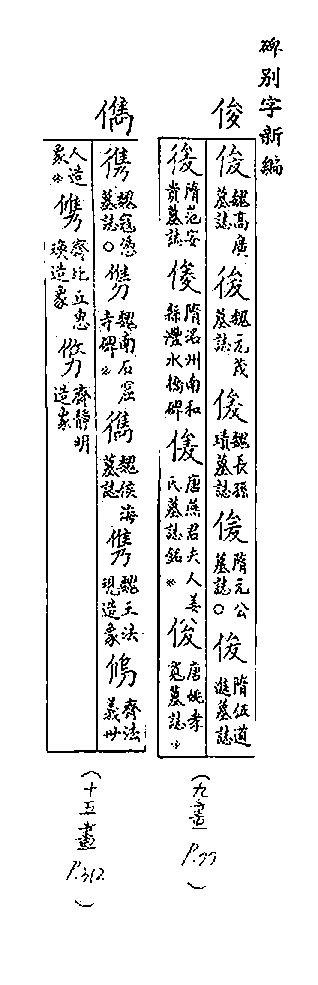 碑別字新編
俊
俊 魏高廣墓誌 俊 魏元茂墓誌 俊 魏長孫瑱墓誌 俊 隋元公墓誌○ 俊 隋伍道進墓誌
俊 隋范安貴墓誌 俊 隋洺州南和縣澧水橋碑 俊 唐燕君夫人姜氏墓誌銘※ 俊 唐姚孝寬墓誌※
(九畫 P.77)
儁
儁 魏寇憑墓誌○ 儁 魏南石窟寺碑※ 儁 魏侯海墓誌 儁 魏王法現造象 儁 齊法義卅
人造象※ 儁 齊比丘惠瑍造象 儁 齊靜明造象
(十五畫 P.312)